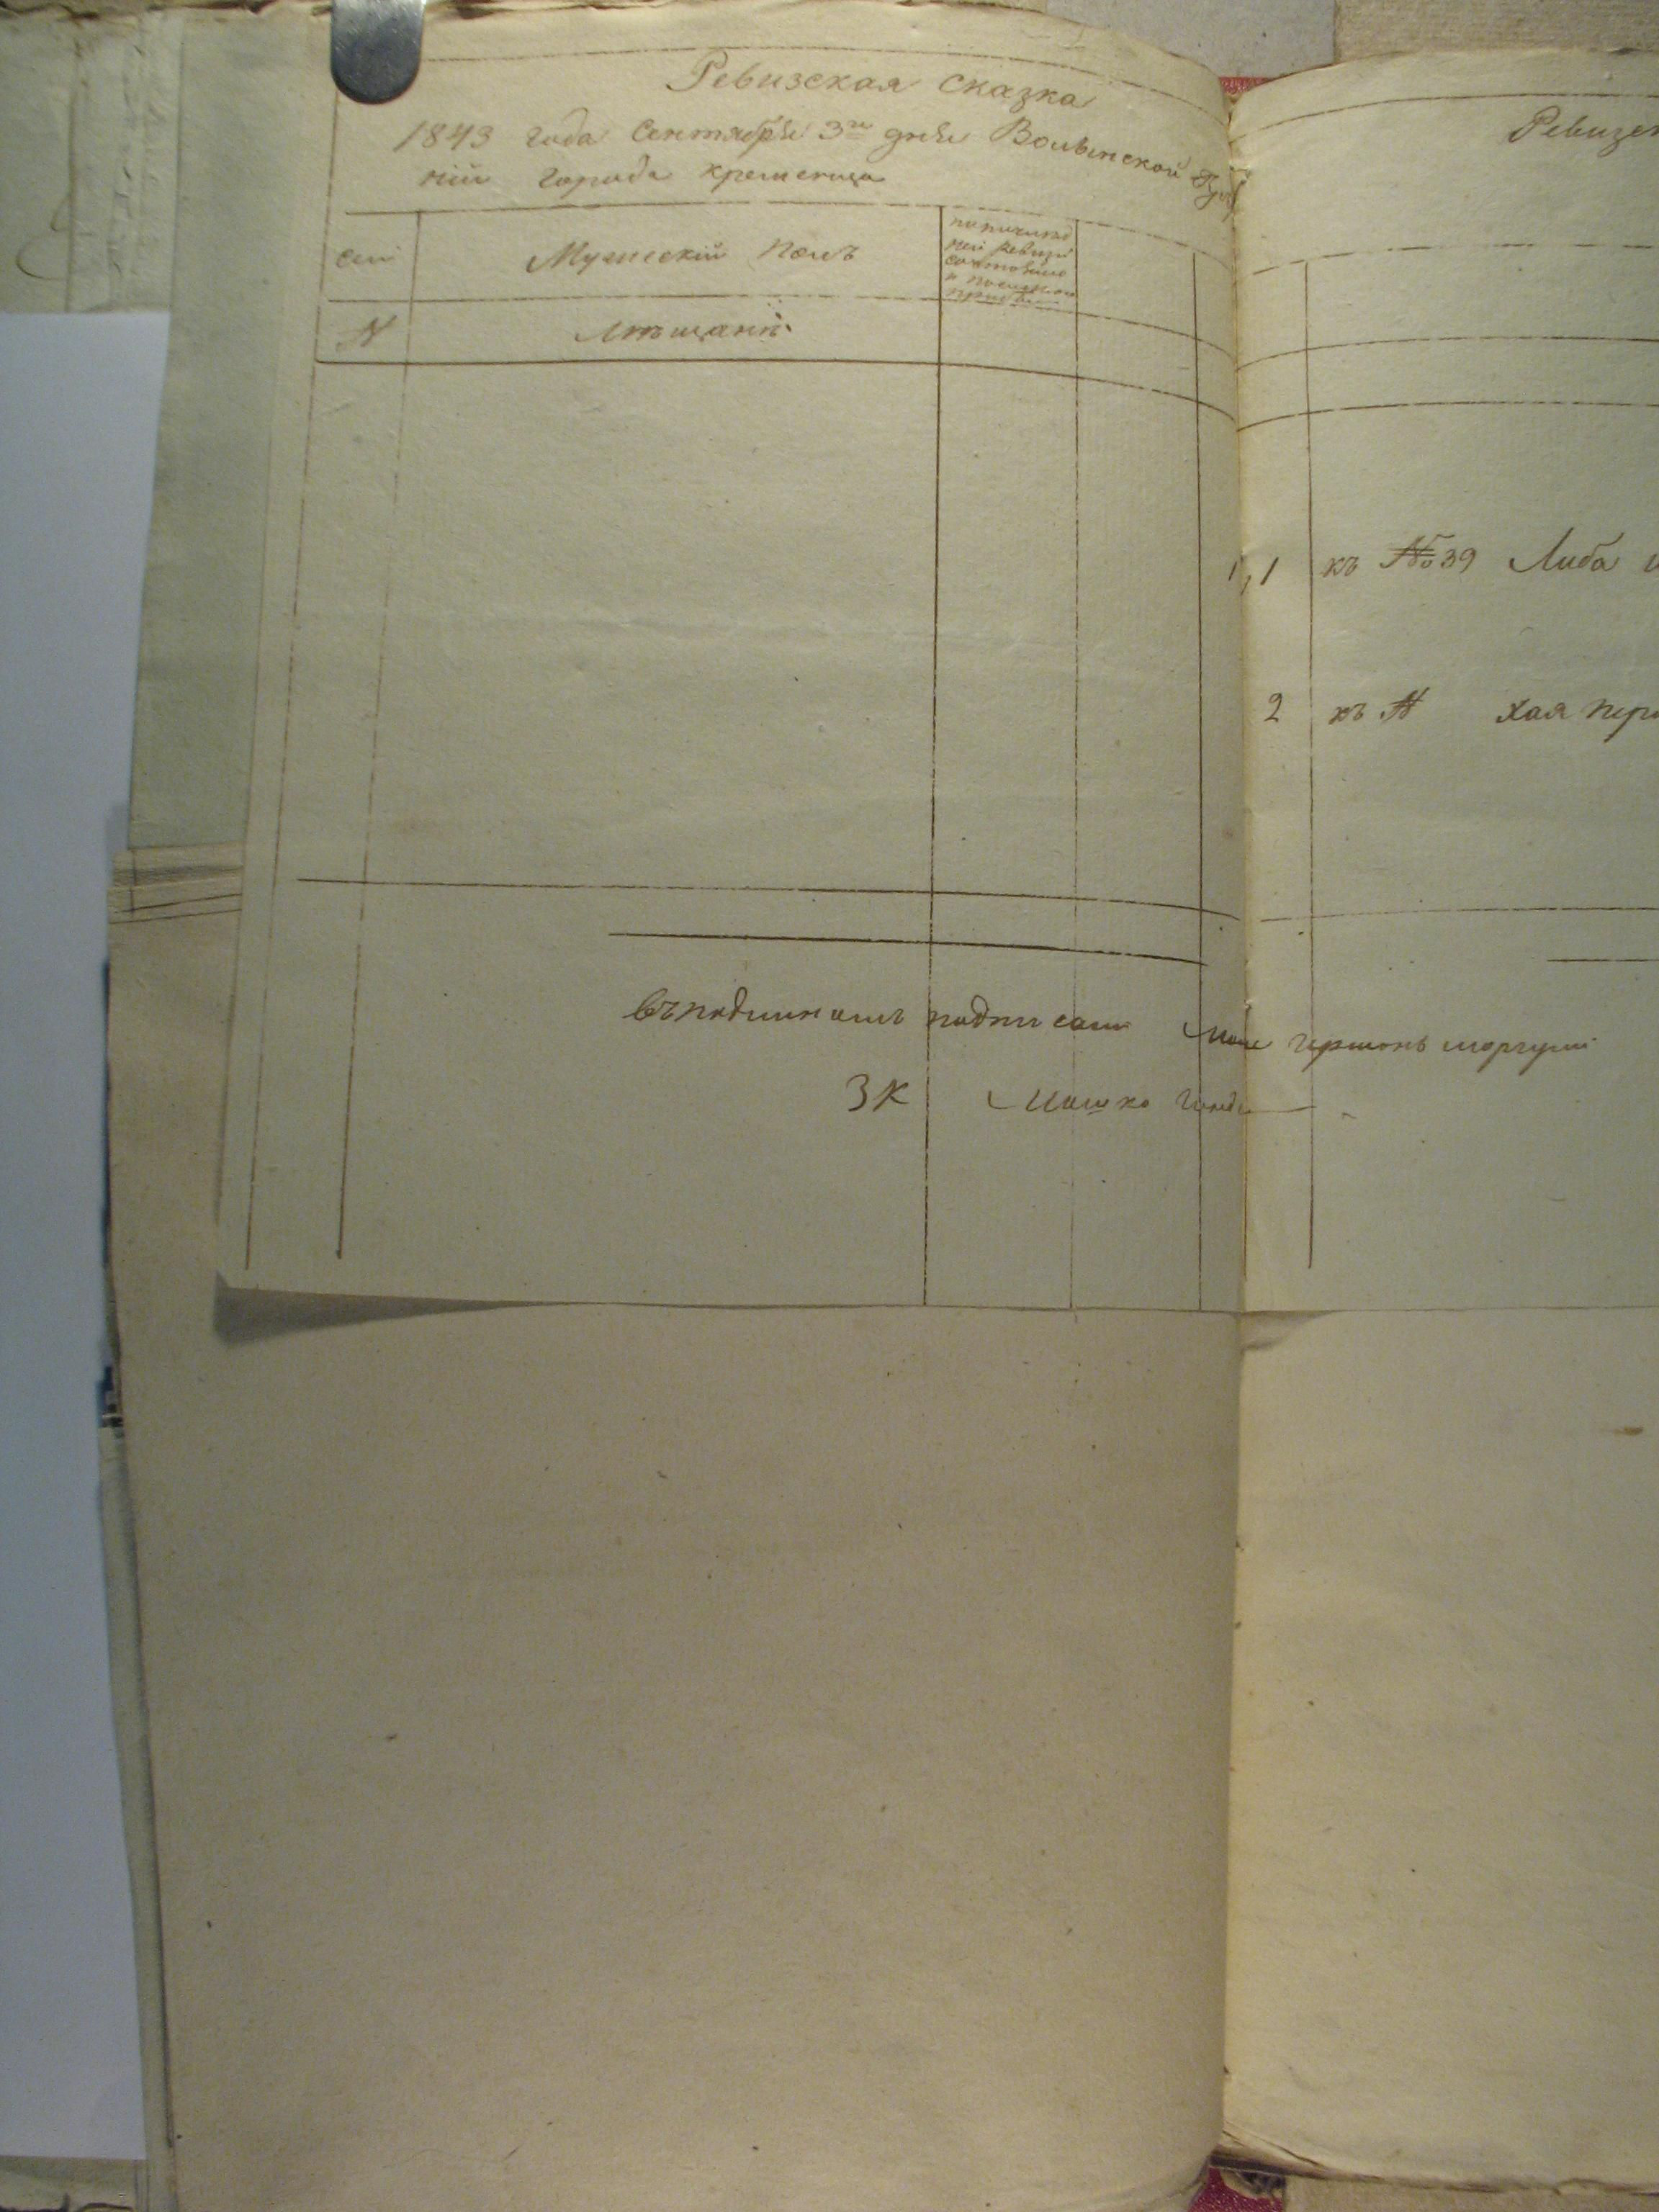 Ревизская Сказка
1843 года Сентября 3го дня Волынской Губ
нии города кременца
сем
Мужеский полъ
ней ревизи
состояло
и после
№
Мѣщанѣ
Ревизс
1 къ №39 Либа
2 къ № Хая
въ подлинномъ подписали Гершонъ
ЗК Мошко